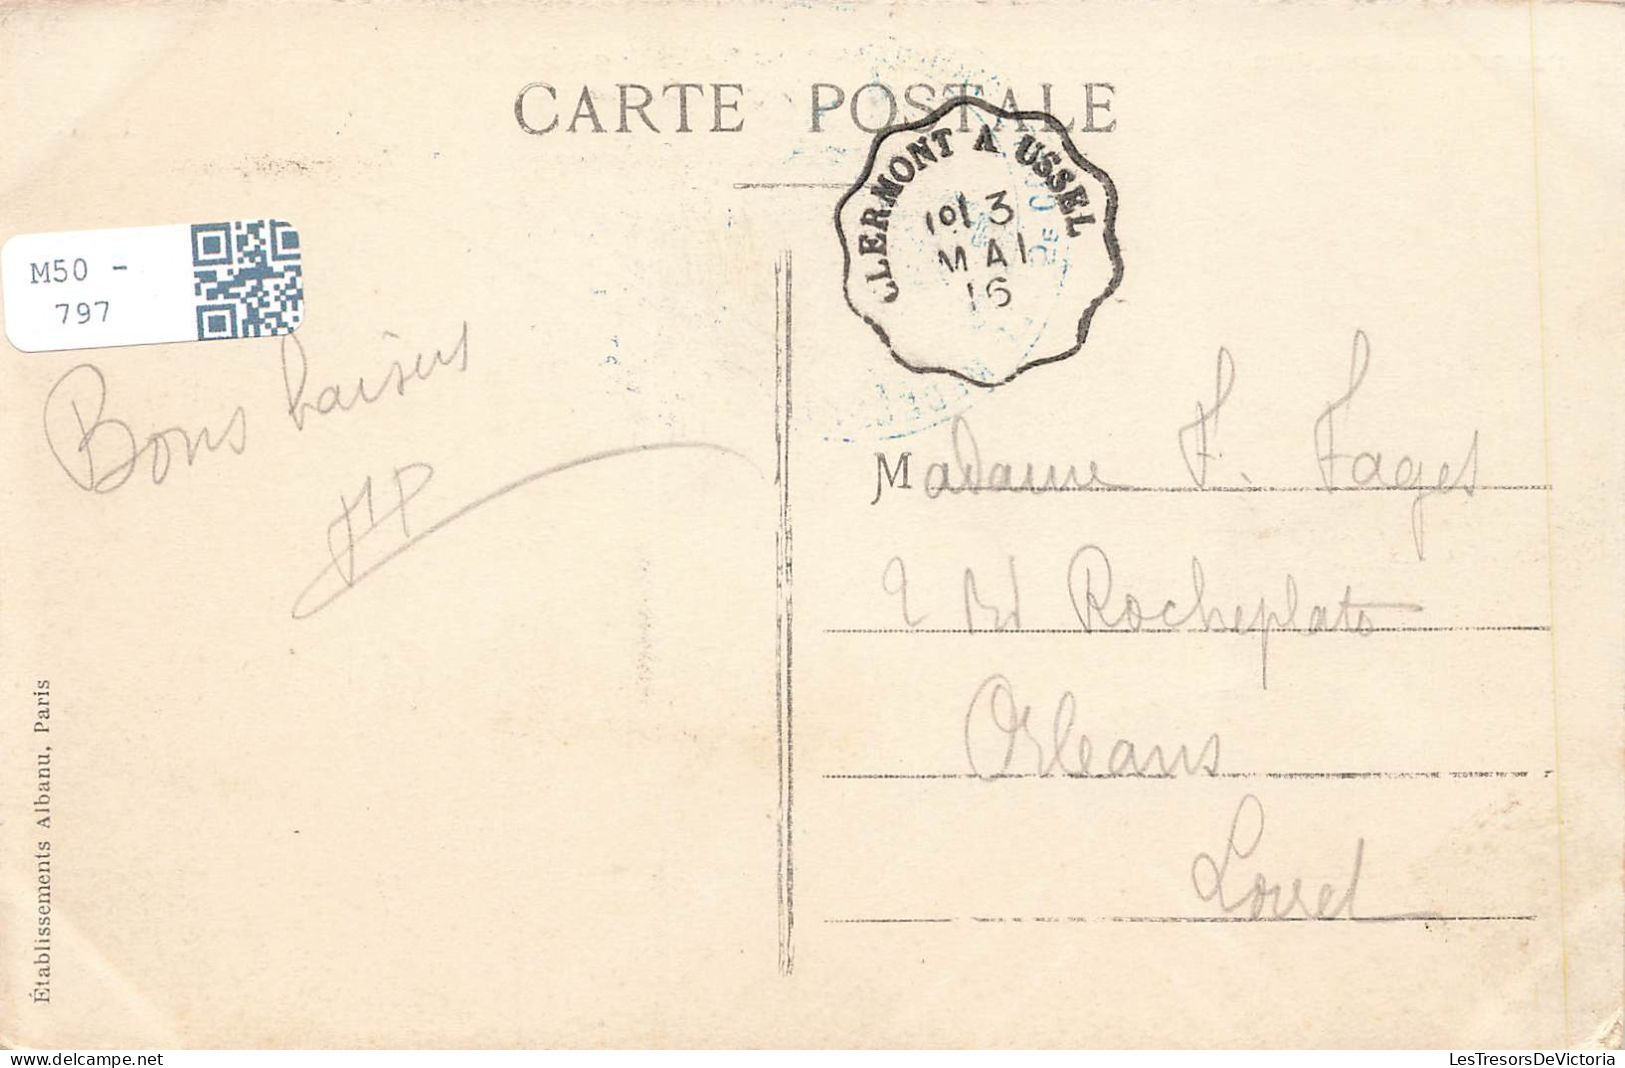 CARTE POSTALE
CLERMONT A USSEL
1º 13
MAI
16
M50 -
797
Bons baisers
Madame F. Fages
2 Bd Rocheplate
Orleans
Loiret
Établissements Albanu, Paris
www.delcampe.net
LesTresorsDeVictoria